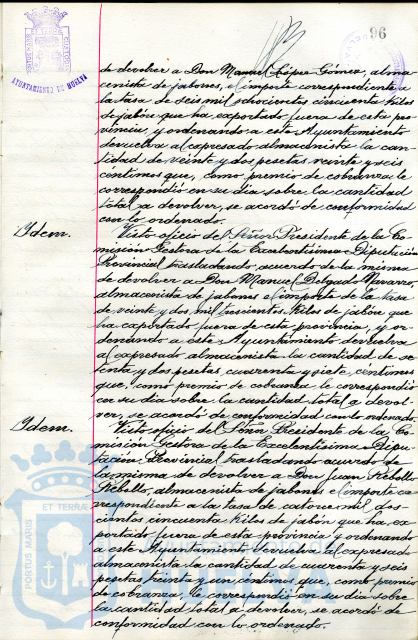 96
AYUNTAMIENTO DE HUELVA
de devolver a Don Manuel López Gómez, alma-
cenista de jabones, el importe correspondiente a
la tasa de seis mil ochocientos cincuenta kilos
de jabón que ha exportado fuera de esta pro-
vincia, y ordenando a este Ayuntamiento
devuelva al expresado almacenista la can-
tidad de veinte y dos pesetas veinte y seis
céntimos que, como premio de cobranza le
correspondió en su dia sobre la cantidad
total a devolver, se acordó de conformidad
con lo ordenado.
Idem. Visto oficio del Señor Presidente de la Co-
misión Gestora de la Excelentísima Diputación
Provincial trasladando acuerdo de la misma
de devolver a Don Manuel Delgado Navarro,
almacenista de jabones el importe de la tasa
de veinte y dos mil trescientos kilos de jabón que
ha exportado fuera de esta provincia, y or-
denando a este Ayuntamiento devuelva
al expresado almacenista la cantidad de se-
tenta y dos pesetas, cuarenta y siete céntimos
que, como premio de cobranza le correspondió
en su dia sobre la cantidad total a devol-
ver, se acordó de conformidad con lo ordenado.
Idem. Visto oficio del Señor Presidente de la Co-
misión Gestora de la Excelentísima Dipu-
tación Provincial trasladando acuerdo de
la misma de devolver a Don Juan Rebollo
Rebollo, almacenista de jabones el importe co-
rrespondiente a la tasa de catorce mil dos-
cientos cincuenta kilos de jabón que ha ex-
portado fuera de esta provincia y ordenando
a este Ayuntamiento devuelva al expresado
almacenista la cantidad de cuarenta y seis
pesetas treinta y un céntimos que, como premio
de cobranza, le correspondió en su dia sobre
la cantidad total a devolver, se acordó de
conformidad con lo ordenado.
PORTUS MARIS ET TERRAE